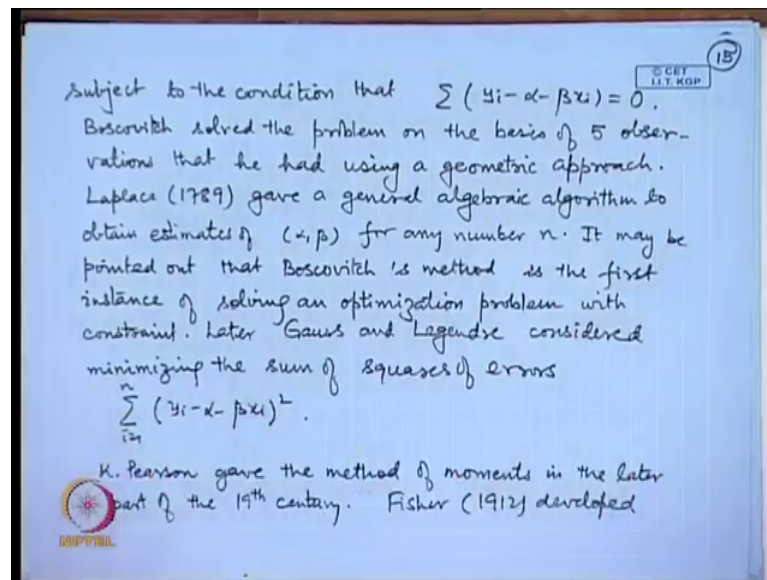 15
© CET
I.I.T. KGP
subject to the condition that Σ (yi - α - βxi) = 0.
Boscovitch solved the problem on the basis of 5 obser-
vations that he had using a geometric approach.
Laplace (1789) gave a general algebraic algorithm to
obtain estimates of (α, β) for any number n. It may be
pointed out that Boscovitch's method is the first
instance of solving an optimization problem with
constraint. Later Gauss and Legendre considered
minimizing the sum of squares of errors
n
Σ (yi - α - βxi)².
i=1
K. Pearson gave the method of moments in the later
part of the 19th century. Fisher (1912) developed
NPTEL